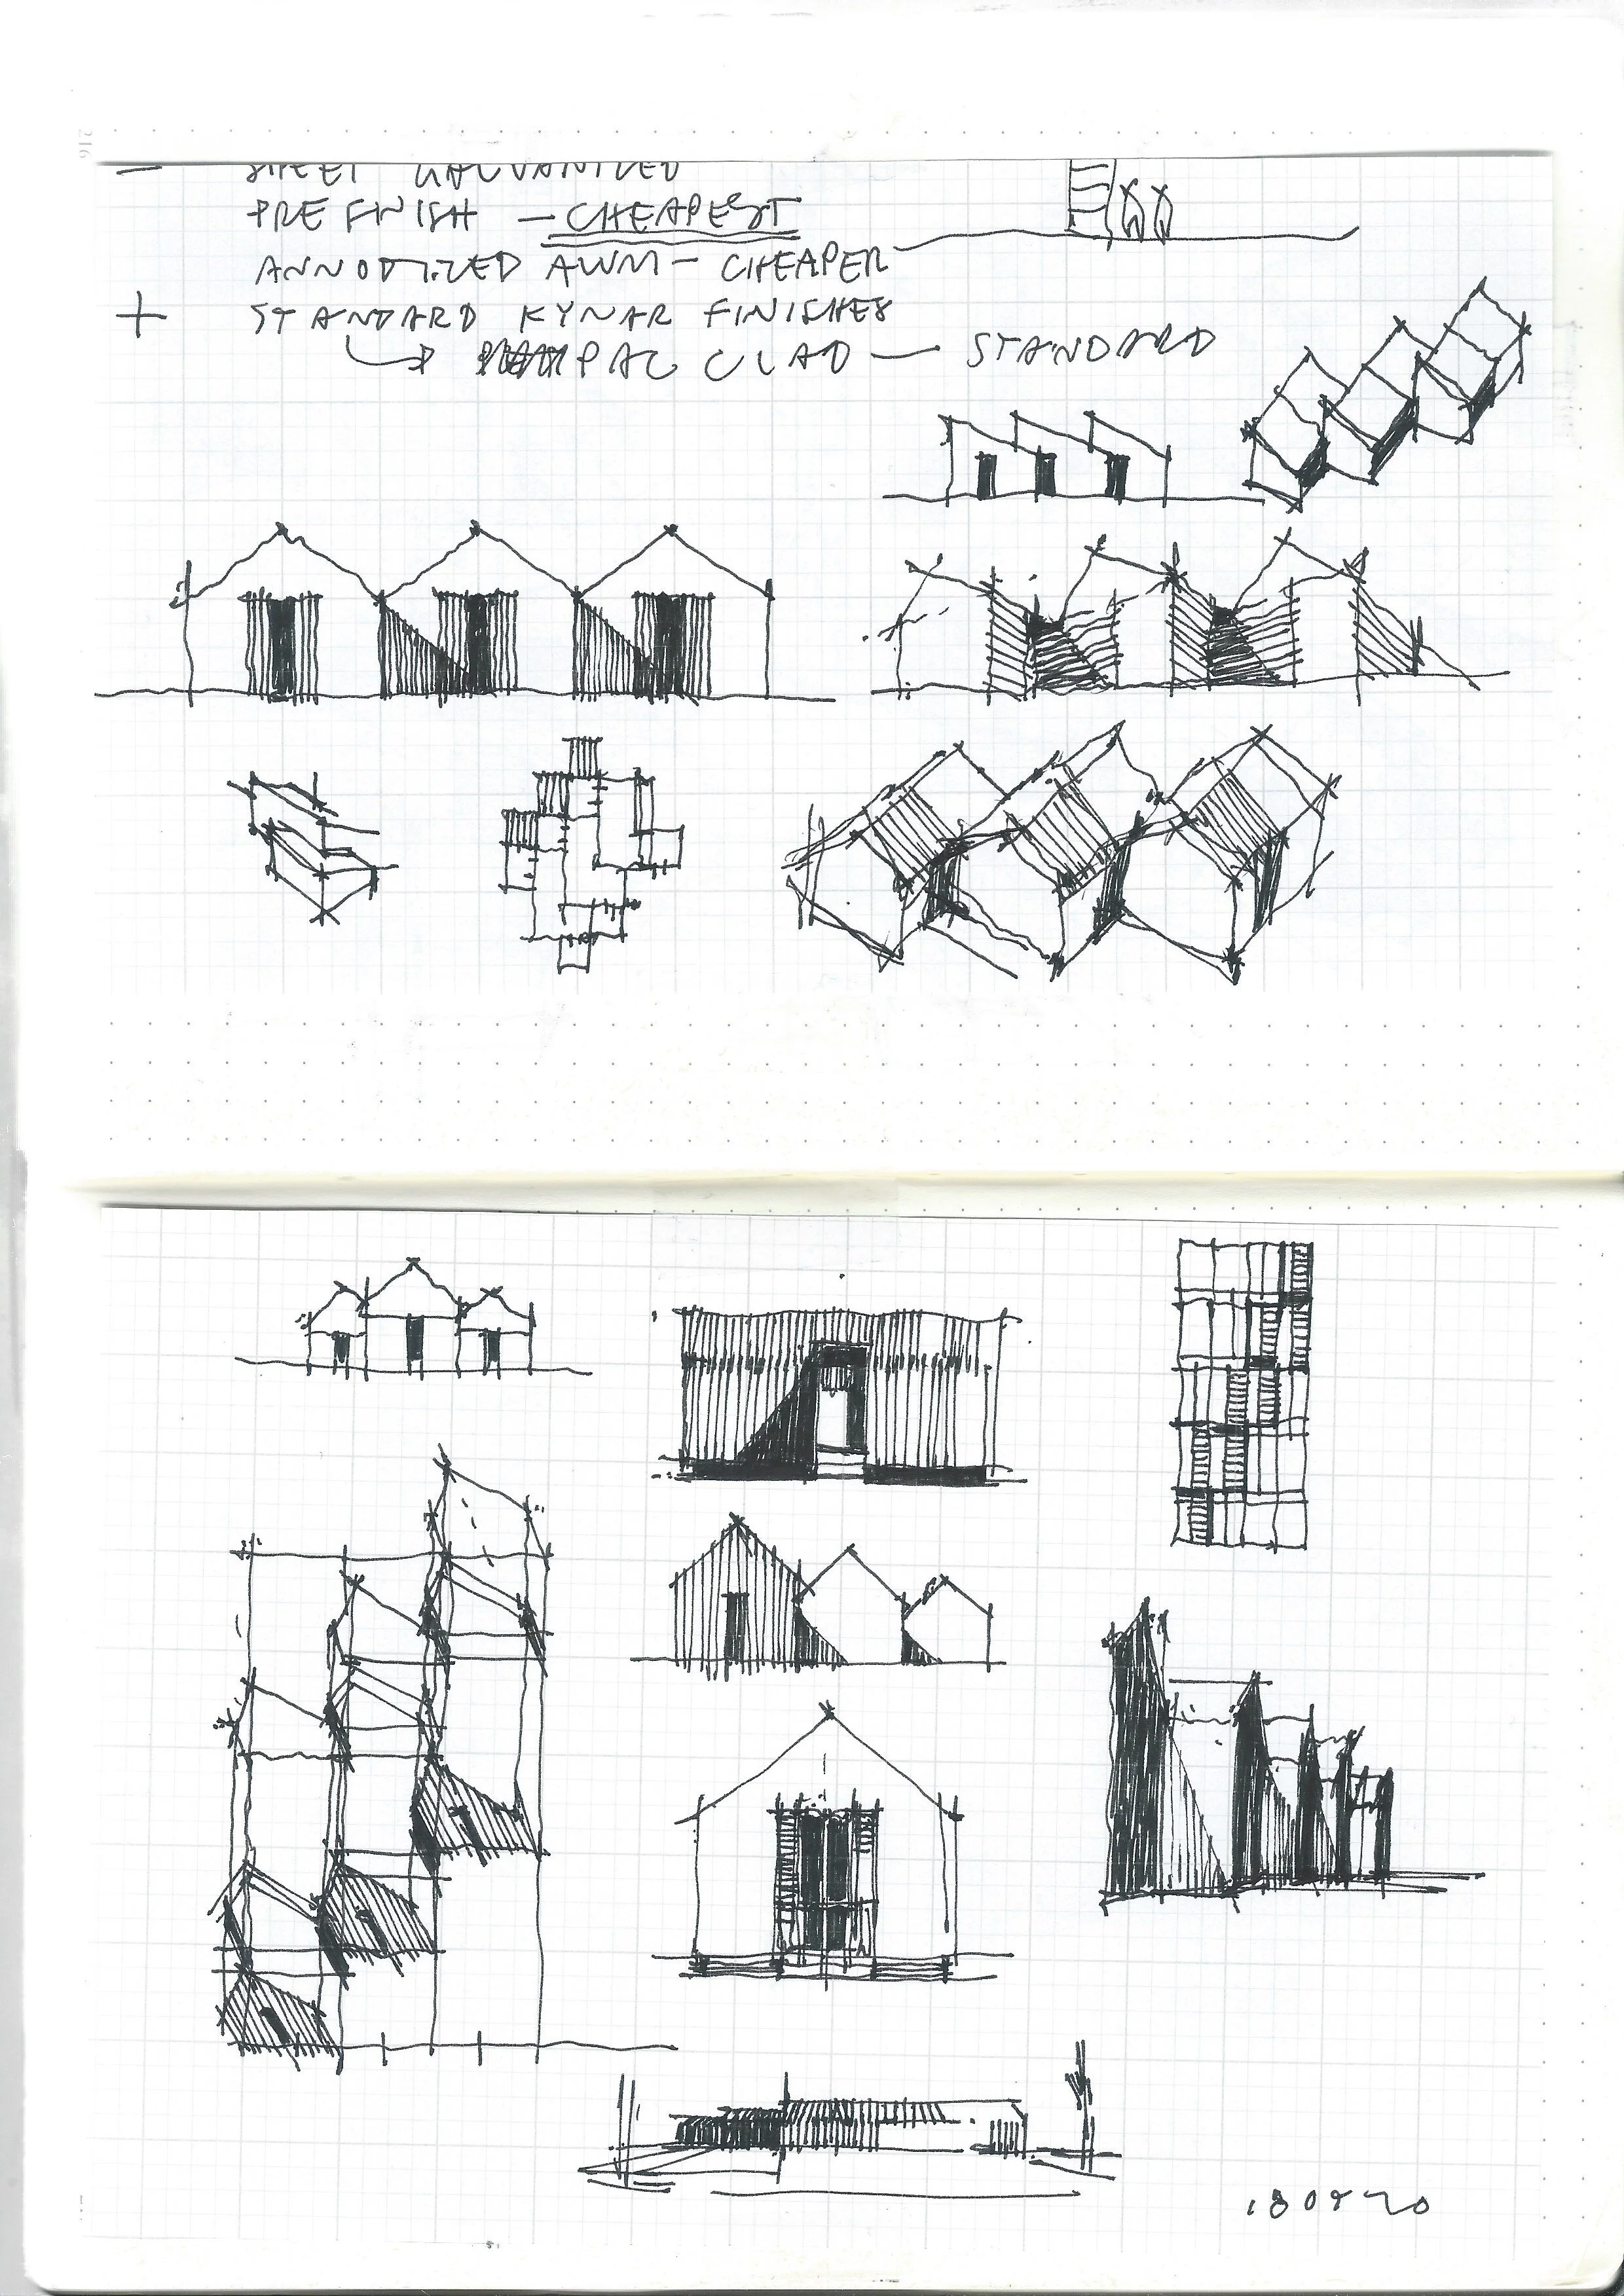 — SHEET GALVANIZED
PRE FINISH — CHEAPEST
ANNODIZED ALUM — CHEAPER
+ STANDARD KYNAR FINISHES
PAC CLAD — STANDARD
180820
216